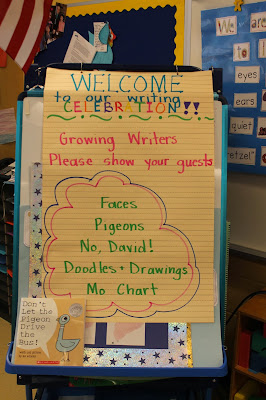 WELCOME
to our writing
CELEBRATION!!
Growing Writers
Please show your guests
Faces
Pigeons
No, David!
Doodles + Drawings
Mo Chart
Don't
Let the
Pigeon
Drive
the
Bus!
We are
eyes
ears
quiet
pretzel